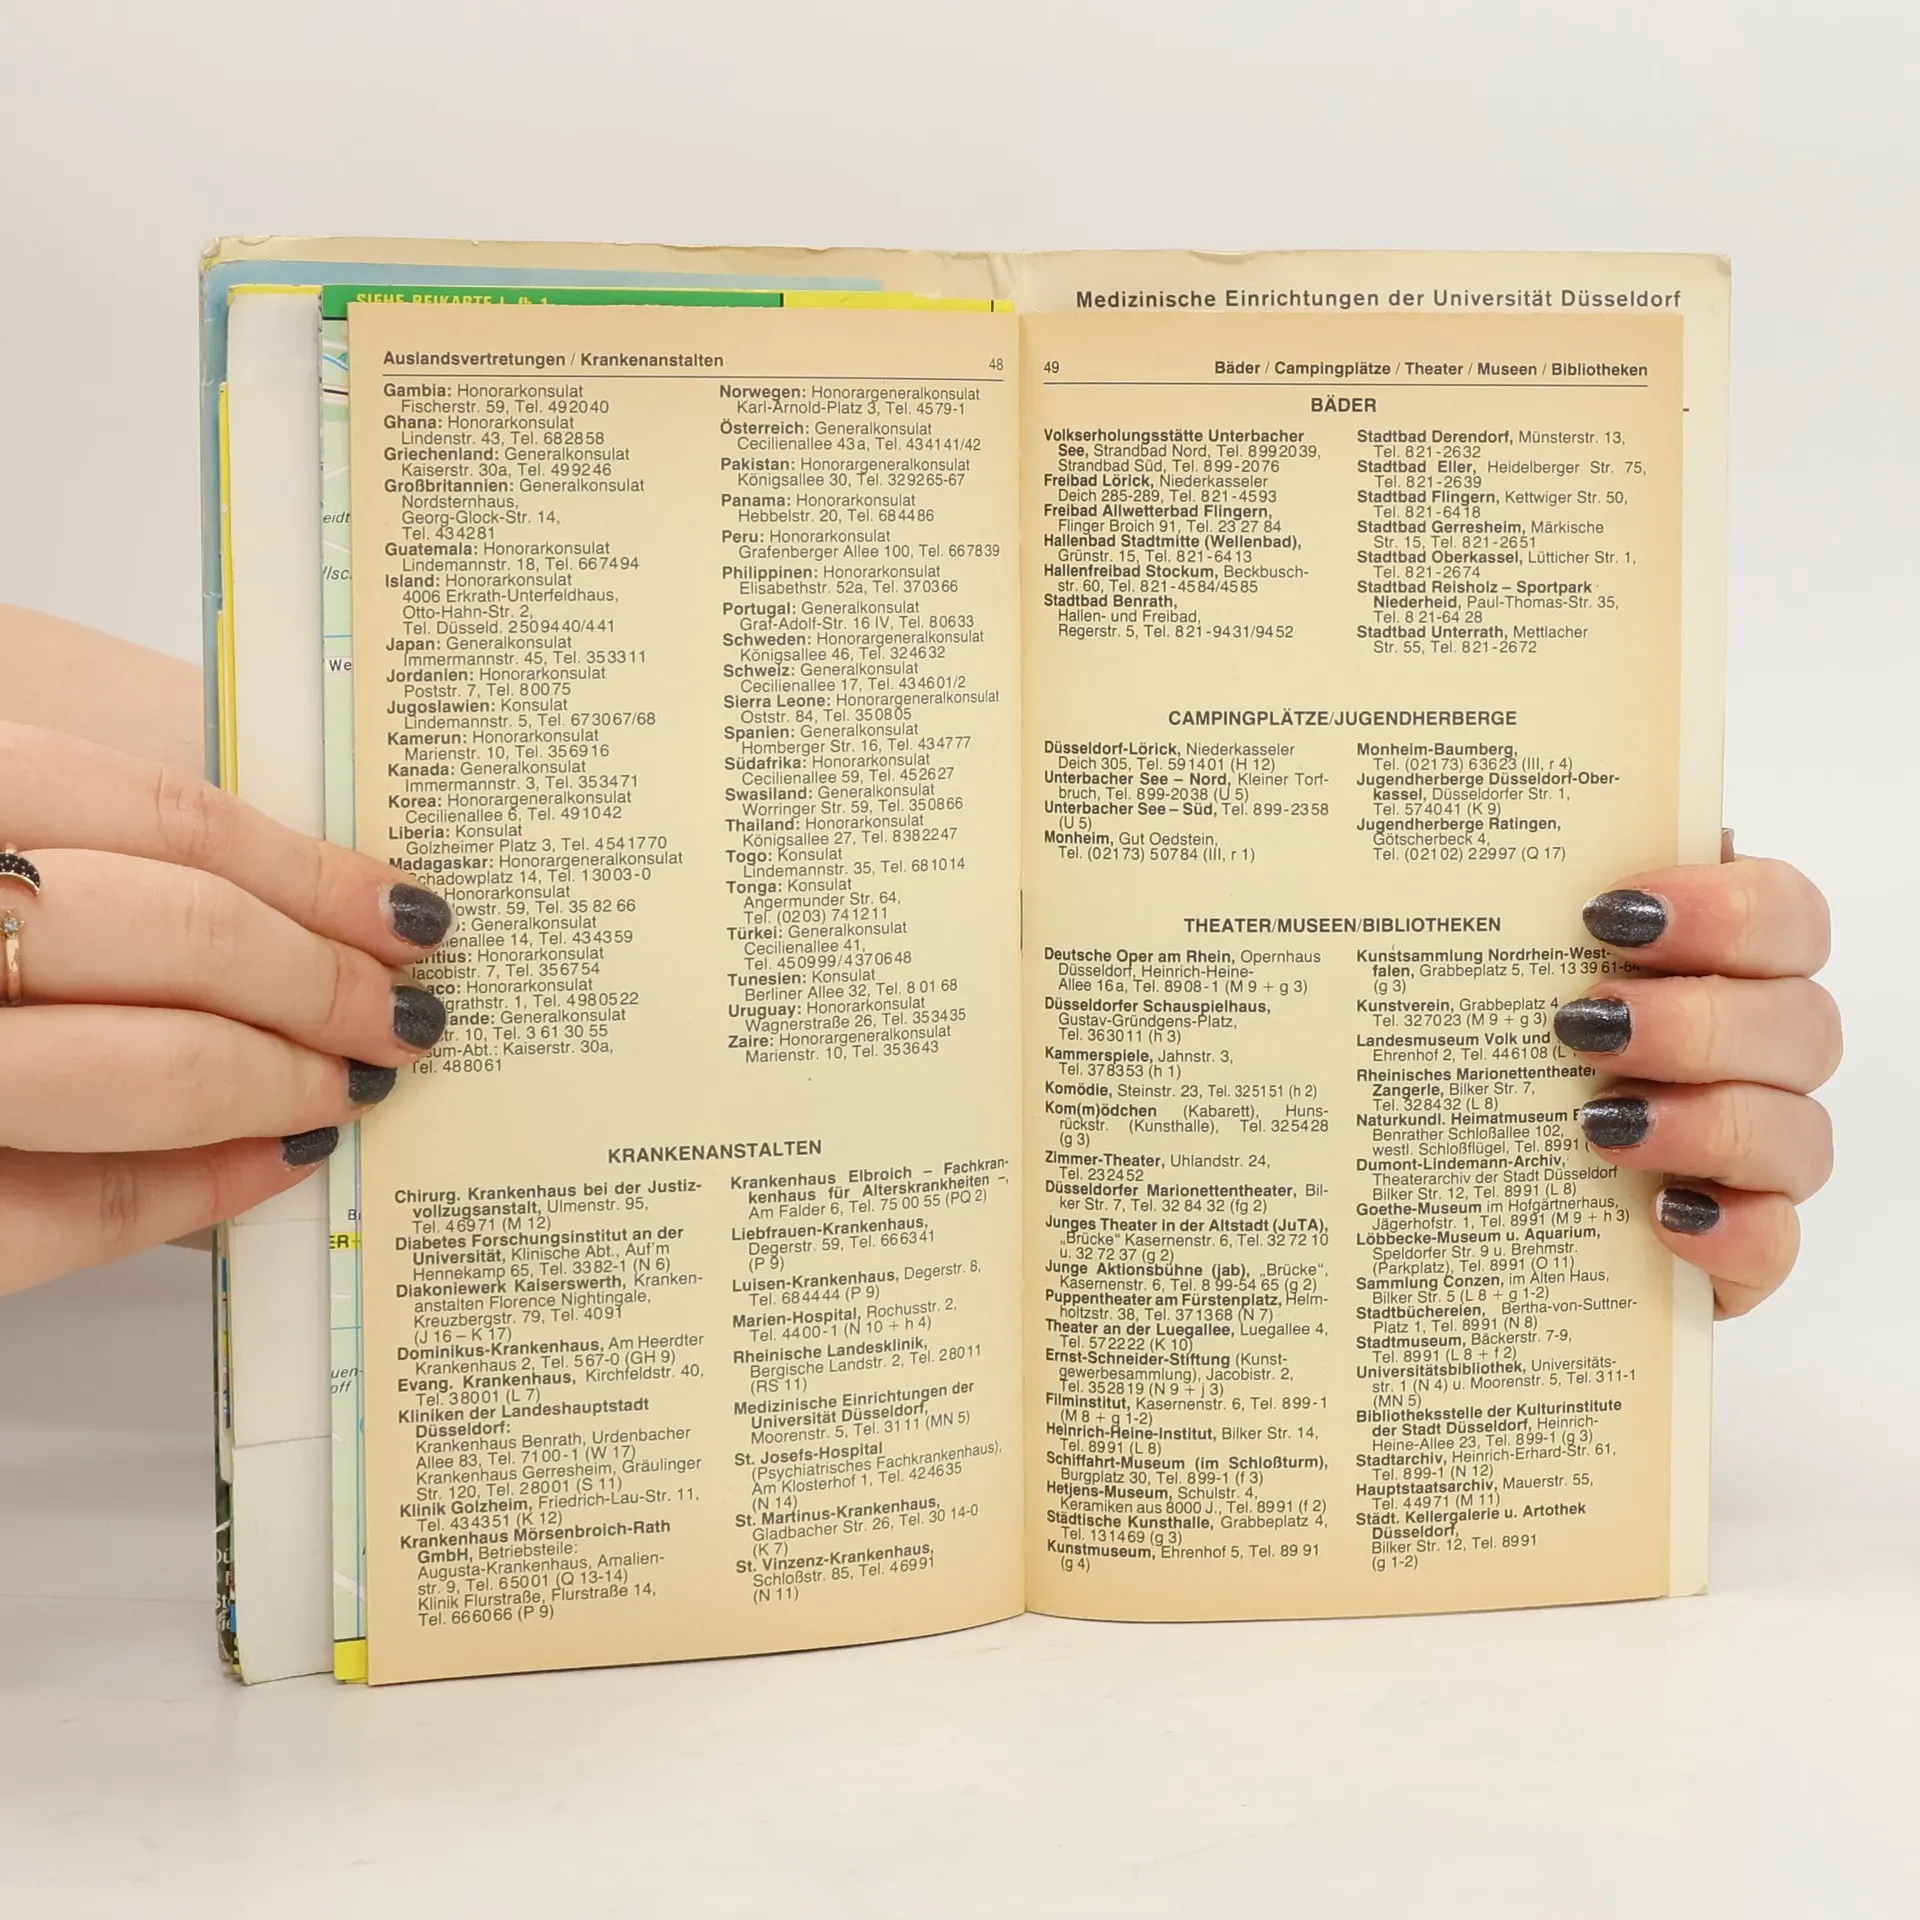 SIEHE BEIKARTE I
Medizinische Einrichtungen der Universität Düsseldorf
Auslandsvertretungen / Krankenanstalten 48
Gambia: Honorarkonsulat
Fischerstr. 59, Tel. 492040
Ghana: Honorarkonsulat
Lindenstr. 43, Tel. 682858
Griechenland: Generalkonsulat
Kaiserstr. 30a, Tel. 499246
Großbritannien: Generalkonsulat
Nordsternhaus,
Georg-Glock-Str. 14,
Tel. 434281
Guatemala: Honorarkonsulat
Lindemannstr. 18, Tel. 667494
Island: Honorarkonsulat
4006 Erkrath-Unterfeldhaus,
Otto-Hahn-Str. 2,
Tel. Düsseld. 2509440/441
Japan: Generalkonsulat
Immermannstr. 45, Tel. 353311
Jordanien: Honorarkonsulat
Poststr. 7, Tel. 80075
Jugoslawien: Konsulat
Lindemannstr. 5, Tel. 673067/68
Kamerun: Honorarkonsulat
Marienstr. 10, Tel. 356916
Kanada: Generalkonsulat
Immermannstr. 3, Tel. 353471
Korea: Honorargeneralkonsulat
Cecilienallee 6, Tel. 491042
Liberia: Konsulat
Golzheimer Platz 3, Tel. 4541770
Madagaskar: Honorargeneralkonsulat
Schadowplatz 14, Tel. 13003-0
Honorarkonsulat
owstr. 59, Tel. 35 82 66
Generalkonsulat
ienallee 14, Tel. 434359
uritius: Honorarkonsulat
Jacobistr. 7, Tel. 356754
aco: Honorarkonsulat
igrathstr. 1, Tel. 4980522
lande: Generalkonsulat
tr. 10, Tel. 3 61 30 55
sum-Abt.: Kaiserstr. 30a,
Tel. 488061
Norwegen: Honorargeneralkonsulat
Karl-Arnold-Platz 3, Tel. 4579-1
Österreich: Generalkonsulat
Cecilienallee 43a, Tel. 434141/42
Pakistan: Honorargeneralkonsulat
Königsallee 30, Tel. 329265-67
Panama: Honorarkonsulat
Hebbelstr. 20, Tel. 684486
Peru: Honorarkonsulat
Grafenberger Allee 100, Tel. 667839
Philippinen: Honorarkonsulat
Elisabethstr. 52a, Tel. 370366
Portugal: Generalkonsulat
Graf-Adolf-Str. 16 IV, Tel. 80633
Schweden: Honorargeneralkonsulat
Königsallee 46, Tel. 324632
Schweiz: Generalkonsulat
Cecilienallee 17, Tel. 434601/2
Sierra Leone: Honorargeneralkonsulat
Oststr. 84, Tel. 350805
Spanien: Generalkonsulat
Homberger Str. 16, Tel. 434777
Südafrika: Honorarkonsulat
Cecilienallee 59, Tel. 452627
Swasiland: Generalkonsulat
Worringer Str. 59, Tel. 350866
Thailand: Honorarkonsulat
Königsallee 27, Tel. 8382247
Togo: Konsulat
Lindemannstr. 35, Tel. 681014
Tonga: Konsulat
Angermunder Str. 64,
Tel. (0203) 741211
Türkei: Generalkonsulat
Cecilienallee 41,
Tel. 450999/4370648
Tunesien: Konsulat
Berliner Allee 32, Tel. 8 01 68
Uruguay: Honorarkonsulat
Wagnerstraße 26, Tel. 353435
Zaire: Honorargeneralkonsulat
Marienstr. 10, Tel. 353643
KRANKENANSTALTEN
Chirurg. Krankenhaus bei der Justiz-
vollzugsanstalt, Ulmenstr. 95,
Tel. 46971 (M 12)
Diabetes Forschungsinstitut an der
Universität, Klinische Abt., Auf'm
Hennekamp 65, Tel. 3382-1 (N 6)
Diakoniewerk Kaiserswerth, Kranken-
anstalten Florence Nightingale,
Kreuzbergstr. 79, Tel. 4091
(J 16 – K 17)
Dominikus-Krankenhaus, Am Heerdter
Krankenhaus 2, Tel. 567-0 (GH 9)
Evang. Krankenhaus, Kirchfeldstr. 40,
Tel. 38001 (L 7)
Kliniken der Landeshauptstadt
Düsseldorf:
Krankenhaus Benrath, Urdenbacher
Allee 83, Tel. 7100-1 (W 17)
Krankenhaus Gerresheim, Gräulinger
Str. 120, Tel. 28001 (S 11)
Klinik Golzheim, Friedrich-Lau-Str. 11,
Tel. 434351 (K 12)
Krankenhaus Mörsenbroich-Rath
GmbH, Betriebsteile:
Augusta-Krankenhaus, Amalien-
str. 9, Tel. 65001 (Q 13-14)
Klinik Flurstraße, Flurstraße 14,
Tel. 666066 (P 9)
Krankenhaus Elbroich – Fachkran-
kenhaus für Alterskrankheiten –,
Am Falder 6, Tel. 75 00 55 (PQ 2)
Liebfrauen-Krankenhaus,
Degerstr. 59, Tel. 666341
(P 9)
Luisen-Krankenhaus, Degerstr. 8,
Tel. 684444 (P 9)
Marien-Hospital, Rochusstr. 2,
Tel. 4400-1 (N 10 + h 4)
Rheinische Landesklinik,
Bergische Landstr. 2, Tel. 28011
(RS 11)
Medizinische Einrichtungen der
Universität Düsseldorf,
Moorenstr. 5, Tel. 3111 (MN 5)
St. Josefs-Hospital
(Psychiatrisches Fachkrankenhaus),
Am Klosterhof 1, Tel. 424635
(N 14)
St. Martinus-Krankenhaus,
Gladbacher Str. 26, Tel. 30 14-0
(K 7)
St. Vinzenz-Krankenhaus,
Schloßstr. 85, Tel. 46991
(N 11)
49 Bäder / Campingplätze / Theater / Museen / Bibliotheken
BÄDER
Volkserholungsstätte Unterbacher
See, Strandbad Nord, Tel. 8992039,
Strandbad Süd, Tel. 899-2076
Freibad Lörick, Niederkasseler
Deich 285-289, Tel. 821-4593
Freibad Allwetterbad Flingern,
Flinger Broich 91, Tel. 23 27 84
Hallenbad Stadtmitte (Wellenbad),
Grünstr. 15, Tel. 821-6413
Hallenfreibad Stockum, Beckbusch-
str. 60, Tel. 821-4584/4585
Stadtbad Benrath,
Hallen- und Freibad,
Regerstr. 5, Tel. 821-9431/9452
Stadtbad Derendorf, Münsterstr. 13,
Tel. 821-2632
Stadtbad Eller, Heidelberger Str. 75,
Tel. 821-2639
Stadtbad Flingern, Kettwiger Str. 50,
Tel. 821-6418
Stadtbad Gerresheim, Märkische
Str. 15, Tel. 821-2651
Stadtbad Oberkassel, Lütticher Str. 1,
Tel. 821-2674
Stadtbad Reisholz – Sportpark
Niederheid, Paul-Thomas-Str. 35,
Tel. 8 21-64 28
Stadtbad Unterrath, Mettlacher
Str. 55, Tel. 821-2672
CAMPINGPLÄTZE/JUGENDHERBERGE
Düsseldorf-Lörick, Niederkasseler
Deich 305, Tel. 591401 (H 12)
Unterbacher See – Nord, Kleiner Torf-
bruch, Tel. 899-2038 (U 5)
Unterbacher See – Süd, Tel. 899-2358
(U 5)
Monheim, Gut Oedstein,
Tel. (02173) 50784 (III, r 1)
Monheim-Baumberg,
Tel. (02173) 63623 (III, r 4)
Jugendherberge Düsseldorf-Ober-
kassel, Düsseldorfer Str. 1,
Tel. 574041 (K 9)
Jugendherberge Ratingen,
Götscherbeck 4,
Tel. (02102) 22997 (Q 17)
THEATER/MUSEEN/BIBLIOTHEKEN
Deutsche Oper am Rhein, Opernhaus
Düsseldorf, Heinrich-Heine-
Allee 16a, Tel. 8908-1 (M 9 + g 3)
Düsseldorfer Schauspielhaus,
Gustav-Gründgens-Platz,
Tel. 363011 (h 3)
Kammerspiele, Jahnstr. 3,
Tel. 378353 (h 1)
Komödie, Steinstr. 23, Tel. 325151 (h 2)
Kom(m)ödchen (Kabarett), Huns-
rückstr. (Kunsthalle), Tel. 325428
(g 3)
Zimmer-Theater, Uhlandstr. 24,
Tel. 232452
Düsseldorfer Marionettentheater, Bil-
ker Str. 7, Tel. 32 84 32 (fg 2)
Junges Theater in der Altstadt (JuTA),
„Brücke“ Kasernenstr. 6, Tel. 32 72 10
u. 32 72 37 (g 2)
Junge Aktionsbühne (jab), „Brücke“,
Kasernenstr. 6, Tel. 8 99-54 65 (g 2)
Puppentheater am Fürstenplatz, Helm-
holtzstr. 38, Tel. 371368 (N 7)
Theater an der Luegallee, Luegallee 4,
Tel. 572222 (K 10)
Ernst-Schneider-Stiftung (Kunst-
gewerbesammlung), Jacobistr. 2,
Tel. 352819 (N 9 + j 3)
Filminstitut, Kasernenstr. 6, Tel. 899-1
(M 8 + g 1-2)
Heinrich-Heine-Institut, Bilker Str. 14,
Tel. 8991 (L 8)
Schiffahrt-Museum (im Schloßturm),
Burgplatz 30, Tel. 899-1 (f 3)
Hetjens-Museum, Schulstr. 4,
Keramiken aus 8000 J., Tel. 8991 (f 2)
Städtische Kunsthalle, Grabbeplatz 4,
Tel. 131469 (g 3)
Kunstmuseum, Ehrenhof 5, Tel. 89 91
(g 4)
Kunstsammlung Nordrhein-West-
falen, Grabbeplatz 5, Tel. 13 39 61-64
(g 3)
Kunstverein, Grabbeplatz 4
Tel. 327023 (M 9 + g 3)
Landesmuseum Volk und
Ehrenhof 2, Tel. 446108 (L
Rheinisches Marionettentheater
Zangerle, Bilker Str. 7,
Tel. 328432 (L 8)
Naturkundl. Heimatmuseum
Benrather Schloßallee 102,
westl. Schloßflügel, Tel. 8991 (
Dumont-Lindemann-Archiv,
Theaterarchiv der Stadt Düsseldorf
Bilker Str. 12, Tel. 8991 (L 8)
Goethe-Museum im Hofgärtnerhaus,
Jägerhofstr. 1, Tel. 8991 (M 9 + h 3)
Löbbecke-Museum u. Aquarium,
Speldorfer Str. 9 u. Brehmstr.
(Parkplatz), Tel. 8991 (O 11)
Sammlung Conzen, im Alten Haus,
Bilker Str. 5 (L 8 + g 1-2)
Stadtbüchereien, Bertha-von-Suttner-
Platz 1, Tel. 8991 (N 8)
Stadtmuseum, Bäckerstr. 7-9,
Tel. 8991 (L 8 + f 2)
Universitätsbibliothek, Universitäts-
str. 1 (N 4) u. Moorenstr. 5, Tel. 311-1
(MN 5)
Bibliotheksstelle der Kulturinstitute
der Stadt Düsseldorf, Heinrich-
Heine-Allee 23, Tel. 899-1 (g 3)
Stadtarchiv, Heinrich-Erhard-Str. 61,
Tel. 899-1 (N 12)
Hauptstaatsarchiv, Mauerstr. 55,
Tel. 44971 (M 11)
Städt. Kellergalerie u. Artothek
Düsseldorf,
Bilker Str. 12, Tel. 8991
(g 1-2)